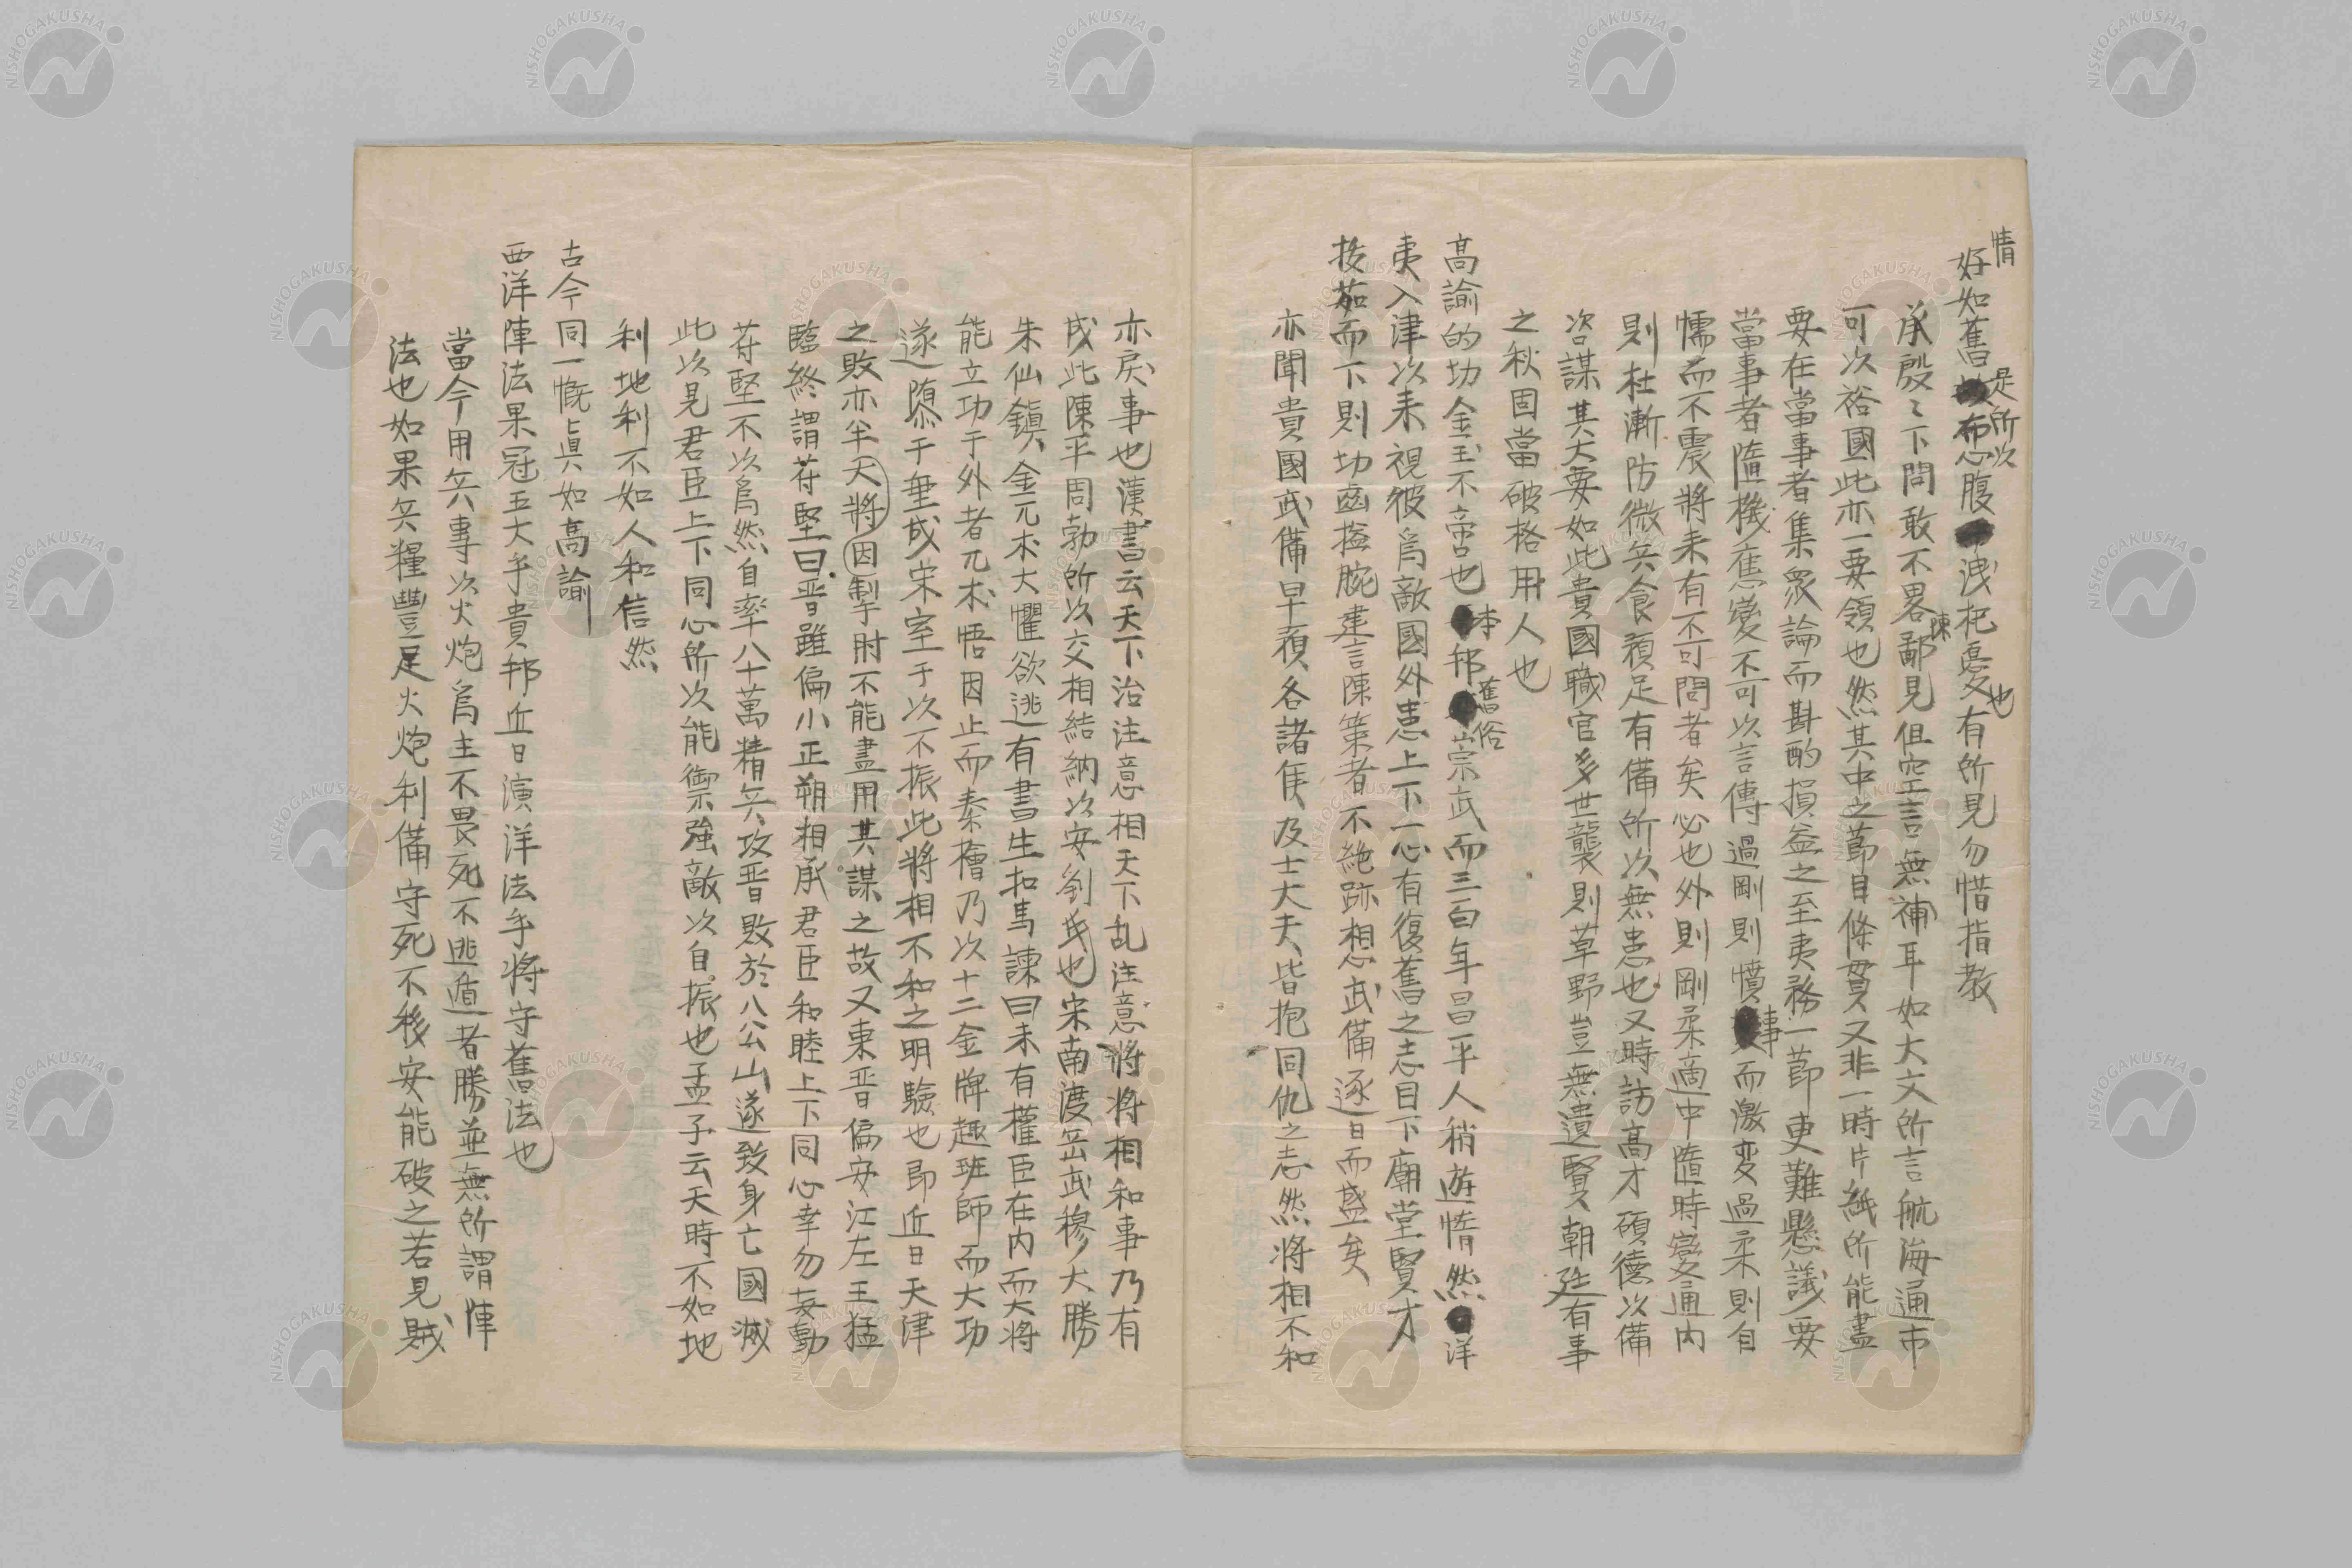 情好如舊是所以布心腹洩杞憂也有所見勿惜指教
承殷〻下問敢不畧陳鄙見但空言無補耳如大文所言航海通市
可以裕國此亦一要領也然其中之節目條貫又非一時片紙所能盡
要在當事者集衆論而斟酌損益之至夷務一節更難懸議要
當事者隨機應變不可以言傳過剛則憤事而激変過柔則自
懦而不震將来有不可問者矣必也外則剛柔適中隨時變通内
則杜漸防微兵食預足有備所以無患也又時訪高才碩德以備
咨謀其大要如此貴國職官多世襲則草野豈無遺賢朝廷有事
之秋固當破格用人也
高諭的切金玉不啻也本邦舊俗崇武而三百年昌平人稍遊惰然洋
夷入津以来視彼爲敵國外患上下一心有復舊之志目下廟堂賢才
拔茹而下則切齒搤腕建言陳策者不絶跡想武備逐日而盛矣
亦聞貴國武備早預各諸侯及士大夫皆抱同仇之志然將相不和
亦戾事也漢書云天下治注意相天下乱注意將將相和事乃有
成此陳平周勃所以交相結納以安劉氏也宋南渡岳武穆大勝
朱仙鎮金兀朮大懼欲逃有書生扣馬諫曰未有權臣在内而大将
能立功于外者兀朮悟因止而秦檜乃以十二金牌趣班師而大功
遂隳于垂成宋室于以不振此將相不和之明驗也即近日天津
之敗亦半天將因掣肘不能盡用其謀之故又東晋偏安江左王猛
臨終謂苻堅曰晋雖偏小正朔相承君臣和睦上下同心幸勿妄動
苻堅不以爲然自率八十萬精兵攻晋敗於八公山遂致身亡國滅
此以見君臣上下同心所以能禦強敵以自振也孟子云天時不如地
利地利不如人和信然
古今同一慨真如高諭
西洋陣法果冠五大乎貴邦近日演洋法乎将守舊法也
當今用兵事以火炮爲主不畏死不逃遁者勝並無所謂陣
法也如果兵糧豐足火炮利備守死不移安能破之若見賊